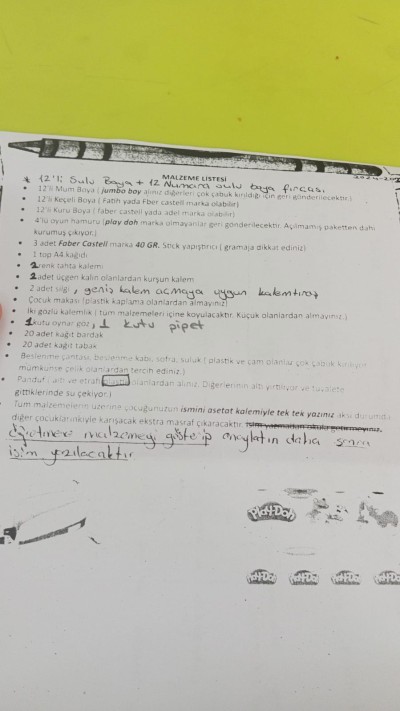 MALZEME LİSTESİ
* 12'li Sulu Boya + 12 Numara sulu boya fırçası
• 12'li Mum Boya ( jumbo boy alınız diğerleri çok çabuk kırıldığı için geri gönderilecektir.)
• 12'li Keçeli Boya ( Fatih yada Fber castell marka olabilir)
• 12'li Kuru Boya ( faber castell yada adel marka olabilir)
• 4'lü oyun hamuru (play doh marka olmayanlar geri gönderilecektir. Açılmamış paketten dahi
kurumuş çıkıyor.)
• 3 adet Faber Castell marka 40 GR. Stick yapıştırıcı ( gramaja dikkat ediniz)
• 1 top A4 kağıdı
• 2 renk tahta kalemi
• 2 adet üçgen kalın olanlardan kurşun kalem
• 2 adet silgi , geniş kalem açmaya uygun kalemtıraş
• Çocuk makası (plastik kaplama olanlardan almayınız)
• İki gözlü kalemlik ( tüm malzemeleri içine koyulacaktır. Küçük olanlardan almayınız.)
• 1 kutu oynar göz, 1 kutu pipet
• 20 adet kağıt bardak
• 20 adet kağıt tabak
• Beslenme çantası, beslenme kabı, sofra, suluk ( plastik ve cam olanlar çok çabuk kırılıyor
mümkünse çelik olanlardan tercih ediniz.)
• Panduf ( altı ve etrafı plastik olanlardan alınız. Diğerlerinin altı yırtılıyor ve tuvalete
gittiklerinde su çekiyor.)
• Tüm malzemelerin üzerine çocuğunuzun ismini asetat kalemiyle tek tek yazınız aksi durumda
diğer çocuklarınkiyle karışacak ekstra masraf çıkaracaktır.
öğretmene malzemeyi gösterip onaylatın daha sonra
isim yazılacaktır
Play-Doh
Play-Doh Play-Doh Play-Doh Play-Doh